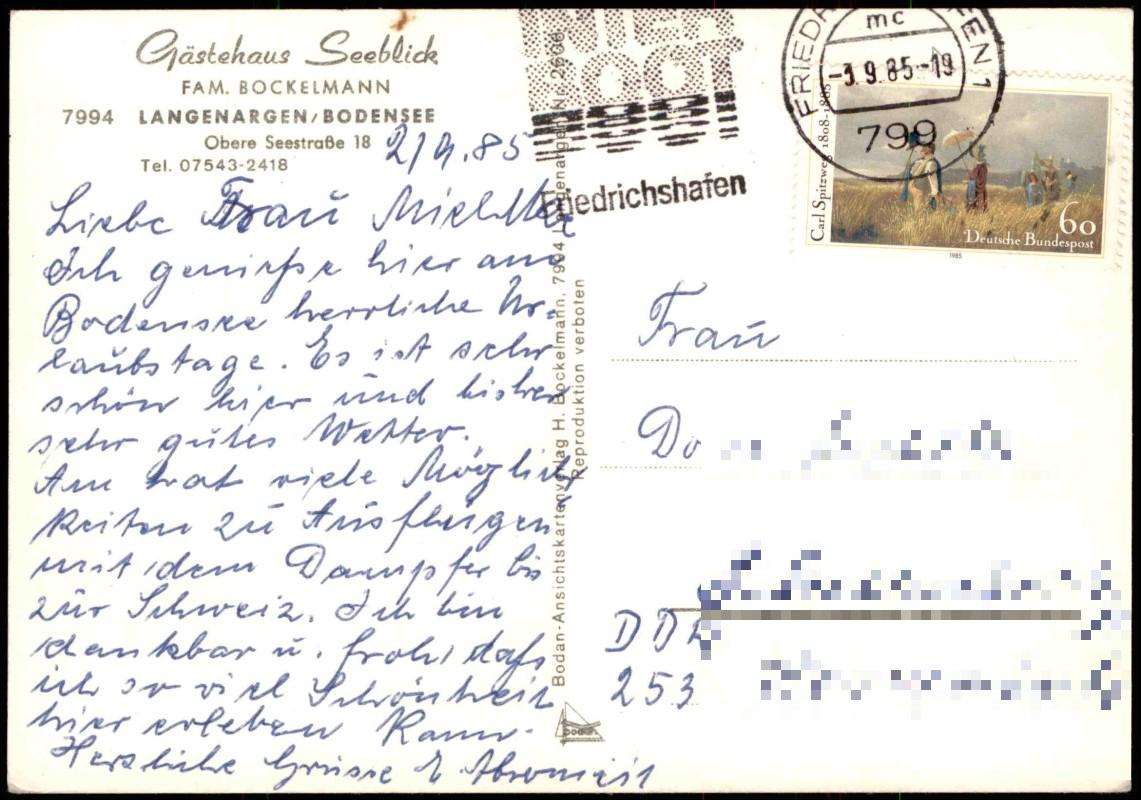 Gästehaus Seeblick
FAM. BOCKELMANN
7994 LANGENARGEN/BODENSEE
Obere Seestraße 18
Tel. 07543-2418
2/9.85
Liebe Frau
Ich genieße hier am
Bodensee herrliche Ur-
laubstage. Es ist sehr
schön hier und bisher
sehr gutes Wetter.
Man hat viele Möglich
keiten zu Ausflügen
mit dem Dampfer bis
zur Schweiz. Ich bin
dankbar u. froh, daß
ich so viel Schönheit
hier erleben kann.
Herzliche Grüsse
Bodan-Ansichtskartenverlag H. Bockelmann, 7994 Langenargen, Nr. 2606
Reproduktion verboten
bodan
INTER
BOOT
Friedrichshafen
FRIEDRICHSHAFEN 1
mc
-3.9.85-19
799
Carl Spitzweg 1808-1885
60
Deutsche Bundespost
1985
Frau
DDR
253